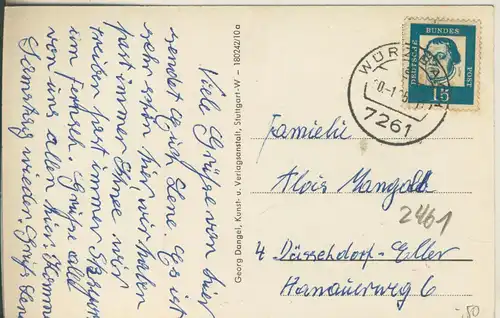 Viele Grüße von hier
sendet Euch Lene. Es ist
sehr schön hier, wir haben
fast immer Schnee, wir
treiben fast immer Skisport
um fernseh. Grüße alle
von uns allen hier. Komme
Samstag wieder. Gruß Lene
Georg Dangel, Kunst- u. Verlagsanstalt, Stuttgart-W - 18024210a
DEUTSCHE
BUNDES
POST
15
WÜR
7261
Familie
Alois Mangold
2461
4 Düsseldorf-Eller
Hanauerweg 6
-,50